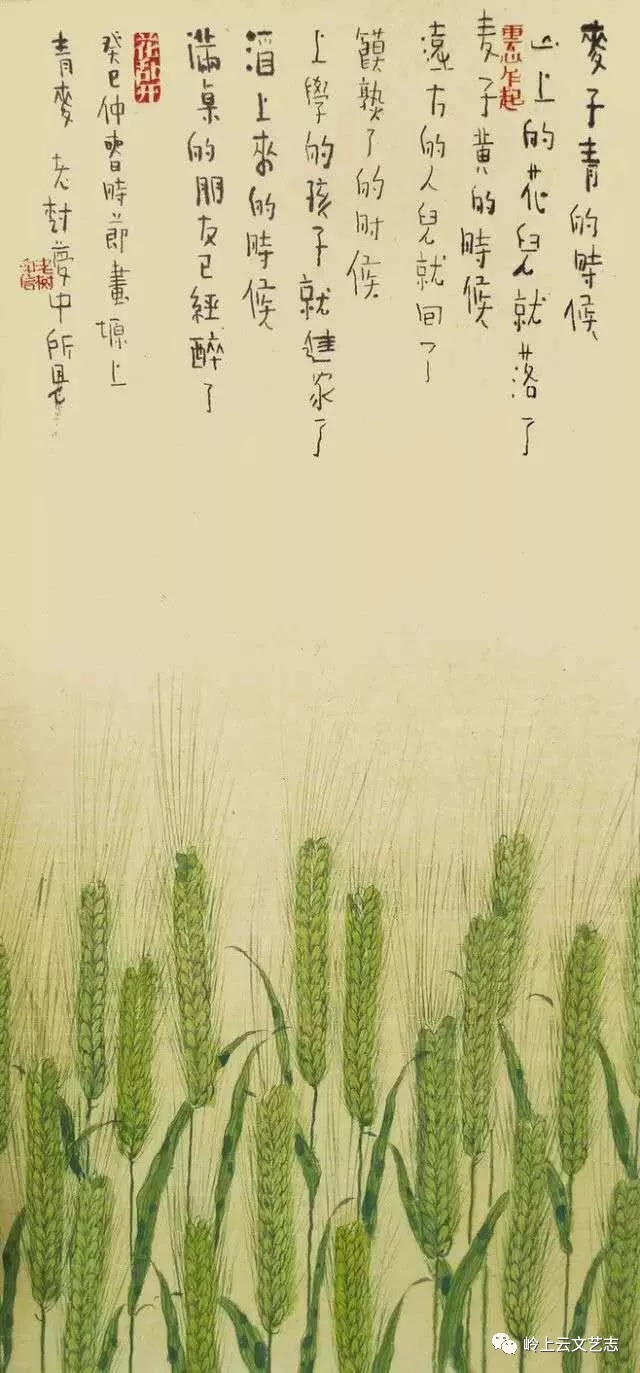 麥子青的時候
山上的花兒就落了
麦子黄的時候
遠方的人兒就回了
饃熟了的时候
上學的孩子就進家了
酒上來的時候
滿桌的朋友已經醉了
花乱开
癸巳仲春時節畫塬上
青麥 老樹夢中所見
岭上云文艺志